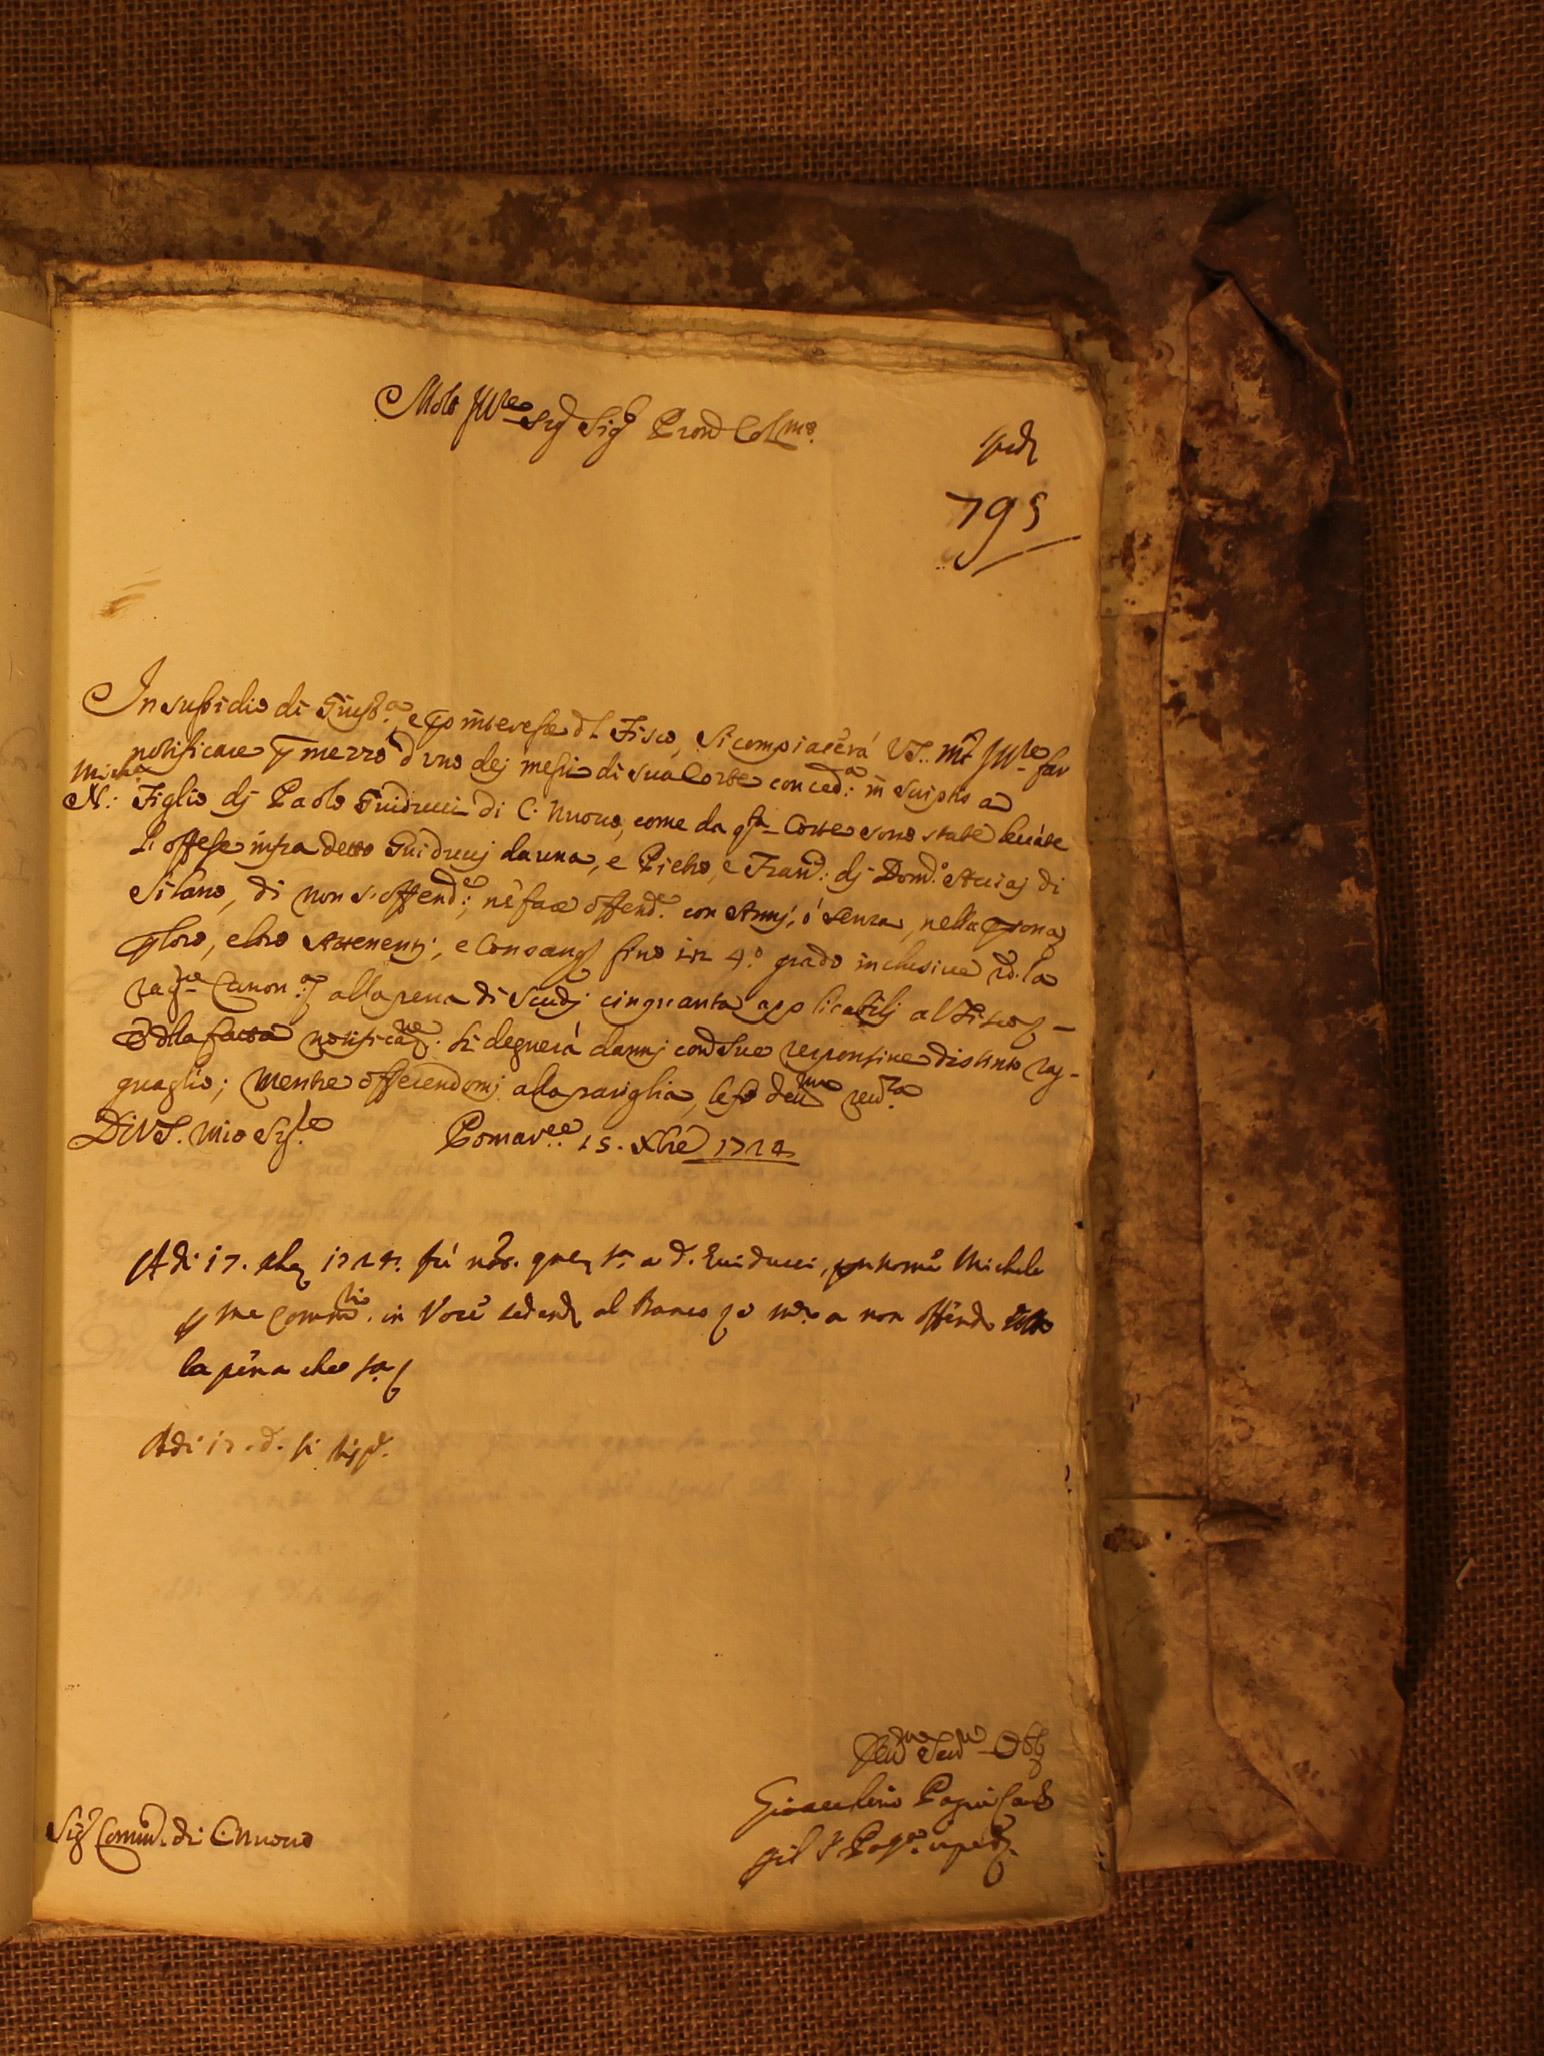 Molto Ill.re Sig.r Sig.r Pron Col.mo
795
In sussidio di Giust.a, e p interesse d l Fisco, si compiacerà VS. mt Ill.re far
notificare p mezzo d uno dej messi di sua Corte con ced.a in scriptis a
Mich.e
N: Figlio dj Paolo Guiducci di C. Nuovo, come da q.sta Corte sono state levate
l'offese infra detto Guiducij da una, e Pietro, e Franc: dj Dom.o di
Silano, di non s'offend.e; nè fare offend.e con Armj, ó senza, nella psona
loro, e loro Attenentj, e Consang fino in 4.o grado inclusive d. la
rag.ne Canon.a alla pena di Scudj cinquanta applicabilj al Fisco
E dlla fatta notificaz.ne si degnerà darmj con Sue responsive distinto rag-
guaglio; mentre offerendomj alla pariglia, le fo dev.ma rev.za
Di VS. mio Sig.re Pomar.ce 15. Xbre 1724
Adi 17. 1724. fù a d. Guiducci, Michele
p me in Voce al Banco a non offender sotto
la pena che
Adi 17. d. si
Dev.mo Serv.re Obb
Gioacchino
Sig.r Comm. di C. Nuovo